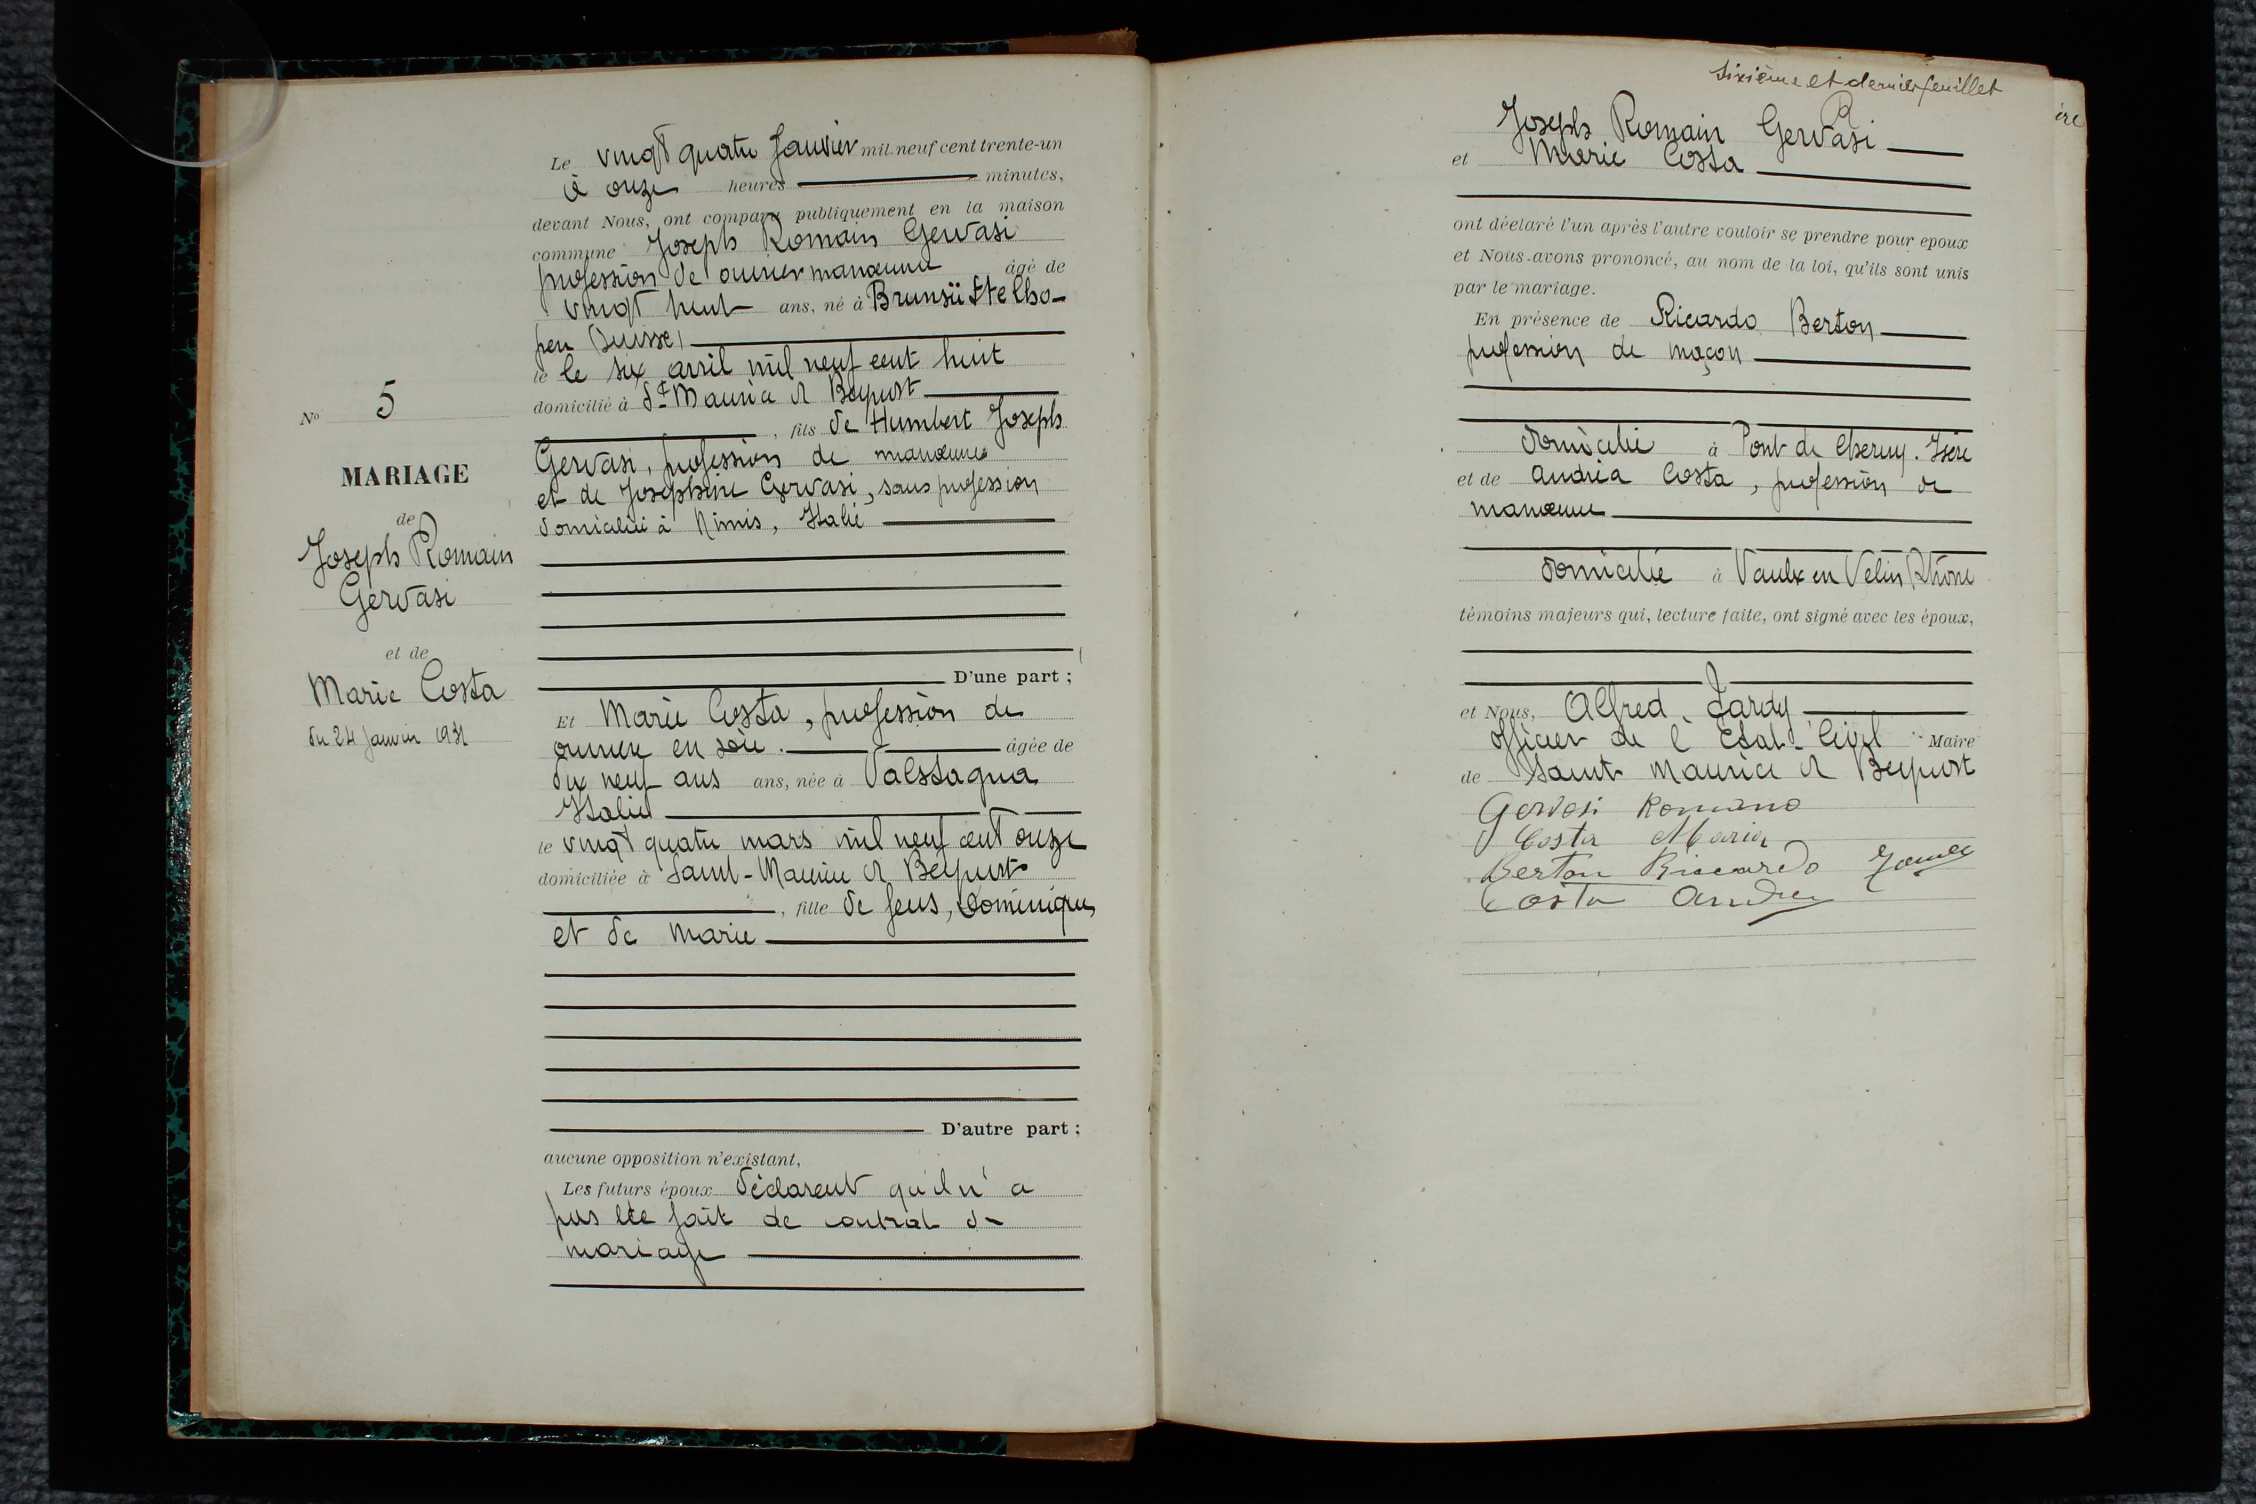 Le vingt quatre Janvier mil neuf cent trente-un
à onze heures minutes,
devant Nous, ont comparu publiquement en la maison
commune Joseph Romain Gervasi
profession de ouvrier manœuvre âgé de
vingt huit ans, né à Brunsüttelho-
pen (Suisse)
le le six avril mil neuf cent huit
domicilié à St Maurice de Beynost
, fils de Humbert Joseph
Gervasi, profession de manœuvre
et de Josephine Gervasi, sans profession
domiciliés à Nimis, Italie
D'une part ;
N° 5
MARIAGE
de
Joseph Romain
Gervasi
et de
Marie Costa
du 24 Janvier 1931
Et Marie Costa, profession de
ouvrière en soie. âgée de
dix neuf ans ans, née à Valstagna
Italie
le vingt quatre mars mil neuf cent onze
domiciliée à Saint-Maurice de Beynost
, fille de feus, Dominique,
et de Marie
D'autre part ;
aucune opposition n'existant,
Les futurs époux déclarent qu'il n'a
pas été fait de contrat de
mariage
Sixième et dernier feuillet
Joseph Romain Gervasi
et Marie Costa
ont déclaré l'un après l'autre vouloir se prendre pour epoux
et Nous avons prononcé, au nom de la loi, qu'ils sont unis
par le mariage.
En présence de Ricardo Berton
profession de maçon
domicilié à Pont de Cheruy. Isère
et de Andréa Costa, profession de
manœuvre
domicilié à Vaulx en Velin, Rhône
témoins majeurs qui, lecture faite, ont signé avec les époux,
et Nous, Alfred Jardy
officier de l'Etat-Civil Maire
de Saint Maurice de Beynost
Gervasi Romano
Costa Maria
Berton Riccardo
Costa Andrea